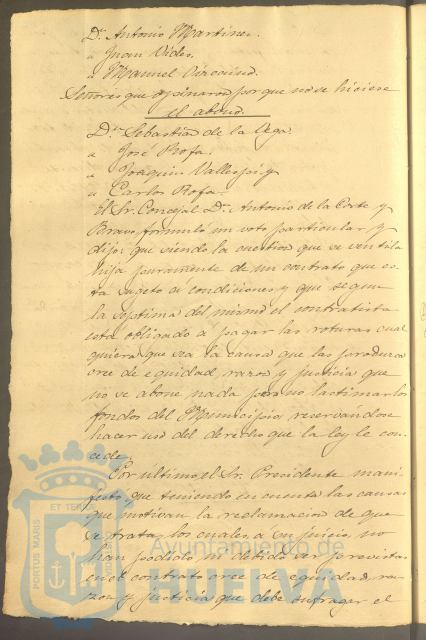 Dn. Antonio Martinez.
" Juan Vides.
" Manuel
Señores que opinaron porque no se hiciese
el abono.
Dn. Sebastian de la Vega.
" José Rofa.
" Joaquin Vallejo, y
" Carlos Rofa.
El Sr. Concejal Dn. Antonio de la Corte y
Bravo formuló un voto particular y
dijo: que siendo la cuestion que se ventila
hija puramente de un contrato que es-
ta sugeto a condiciones y que segun
la septima del mismo el contratista
está obligado a pagar las roturas cual
quiera que sea la causa que las produzca
cree de equidad razon y justicia que
no se abone nada para no lastimar los
fondos del Municipio, reservandose
hacer uso del derecho que la ley le con-
cede.
Por ultimo, el Sr. Presidente mani-
festó que teniendo en cuenta las causas
que motivan la reclamacion de que
se trata, las cuales, á su juicio, no
han podido ni debido ser previstas
en el contrato cree de equidad, ra-
zon y justicia que debe sufragar el
PORTUS MARIS ET TERRE
Ayuntamiento de
HUELVA